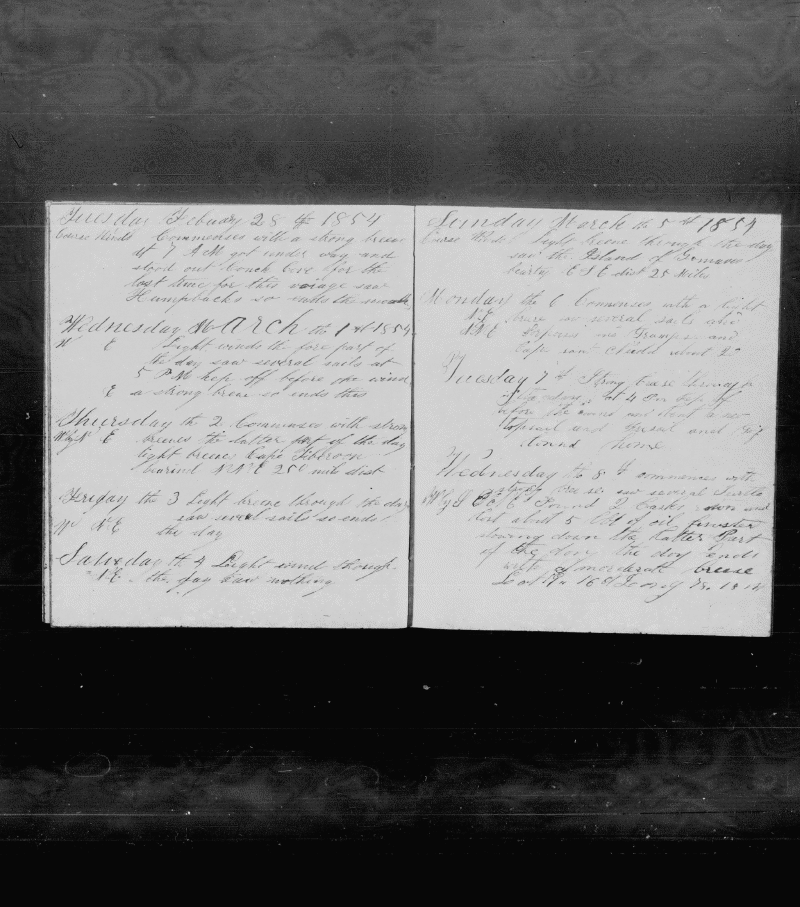 Tuesday Febuary 28th 1854
Course Winds Commenses with a strong breese
At 7 AM got under way and
stood out Couch Cove for the
last time for this voiage saw
Humpbacks so ends the month
Wednesday March the 1st 1854
W E Light winds the fore part of
the day saw several sails at
5 PM kep off before the wind
E a strong breese so ends this
Thursday the 2 Commenses with strong
W by N E breeses the latter part of the day
light breese Cape Tiberoon
bearing NNE 25 mile dist
Friday the 3 Light breese through the day
W NE saw several sails so ends
the day
Saturday the 4 Light wind through
NE the day saw nothing
Sunday March the 5th 1854
Course Winds light breese through the day
saw the Island of
bearing ESE dist 25 Miles
Monday the 6 Commenses with a light
NE breese saw several sails
NNE and
Cape
Tuesday 7th Strong breese through
the day at 4 PM kep of
before the wind and
topsail and
down home
Wednesday the 8th commences with
strong breese saw several Turtle
W by S E Found 2 Casks down and
lost about 5 of oil
stowing down the latter part
of the day the day ends
with a moderate breese
Lat 16 Long